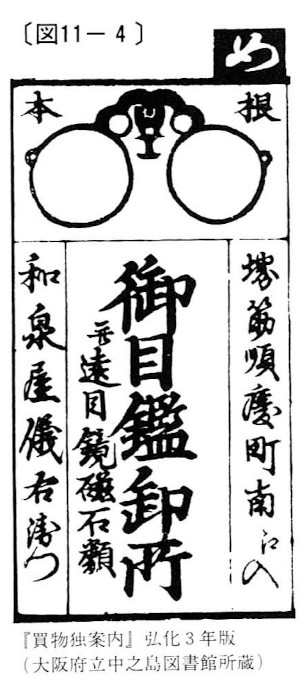 〔図11－4〕
め
根本
堺筋順慶町南江入
御目鑑卸所
并遠目鏡磁石類
和泉屋儀右衛門
『買物独案内』弘化3年版
(大阪府立中之島図書館所蔵)